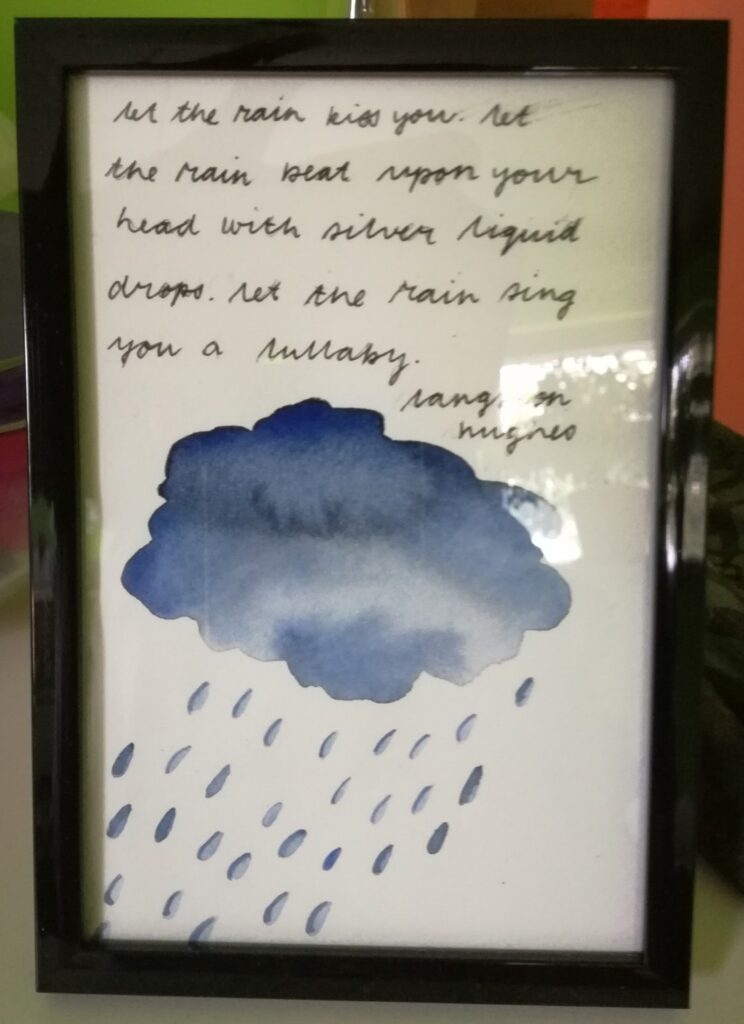 let the rain kiss you. let
the rain beat upon your
head with silver liquid
drops. let the rain sing
you a lullaby.
langston
hughes